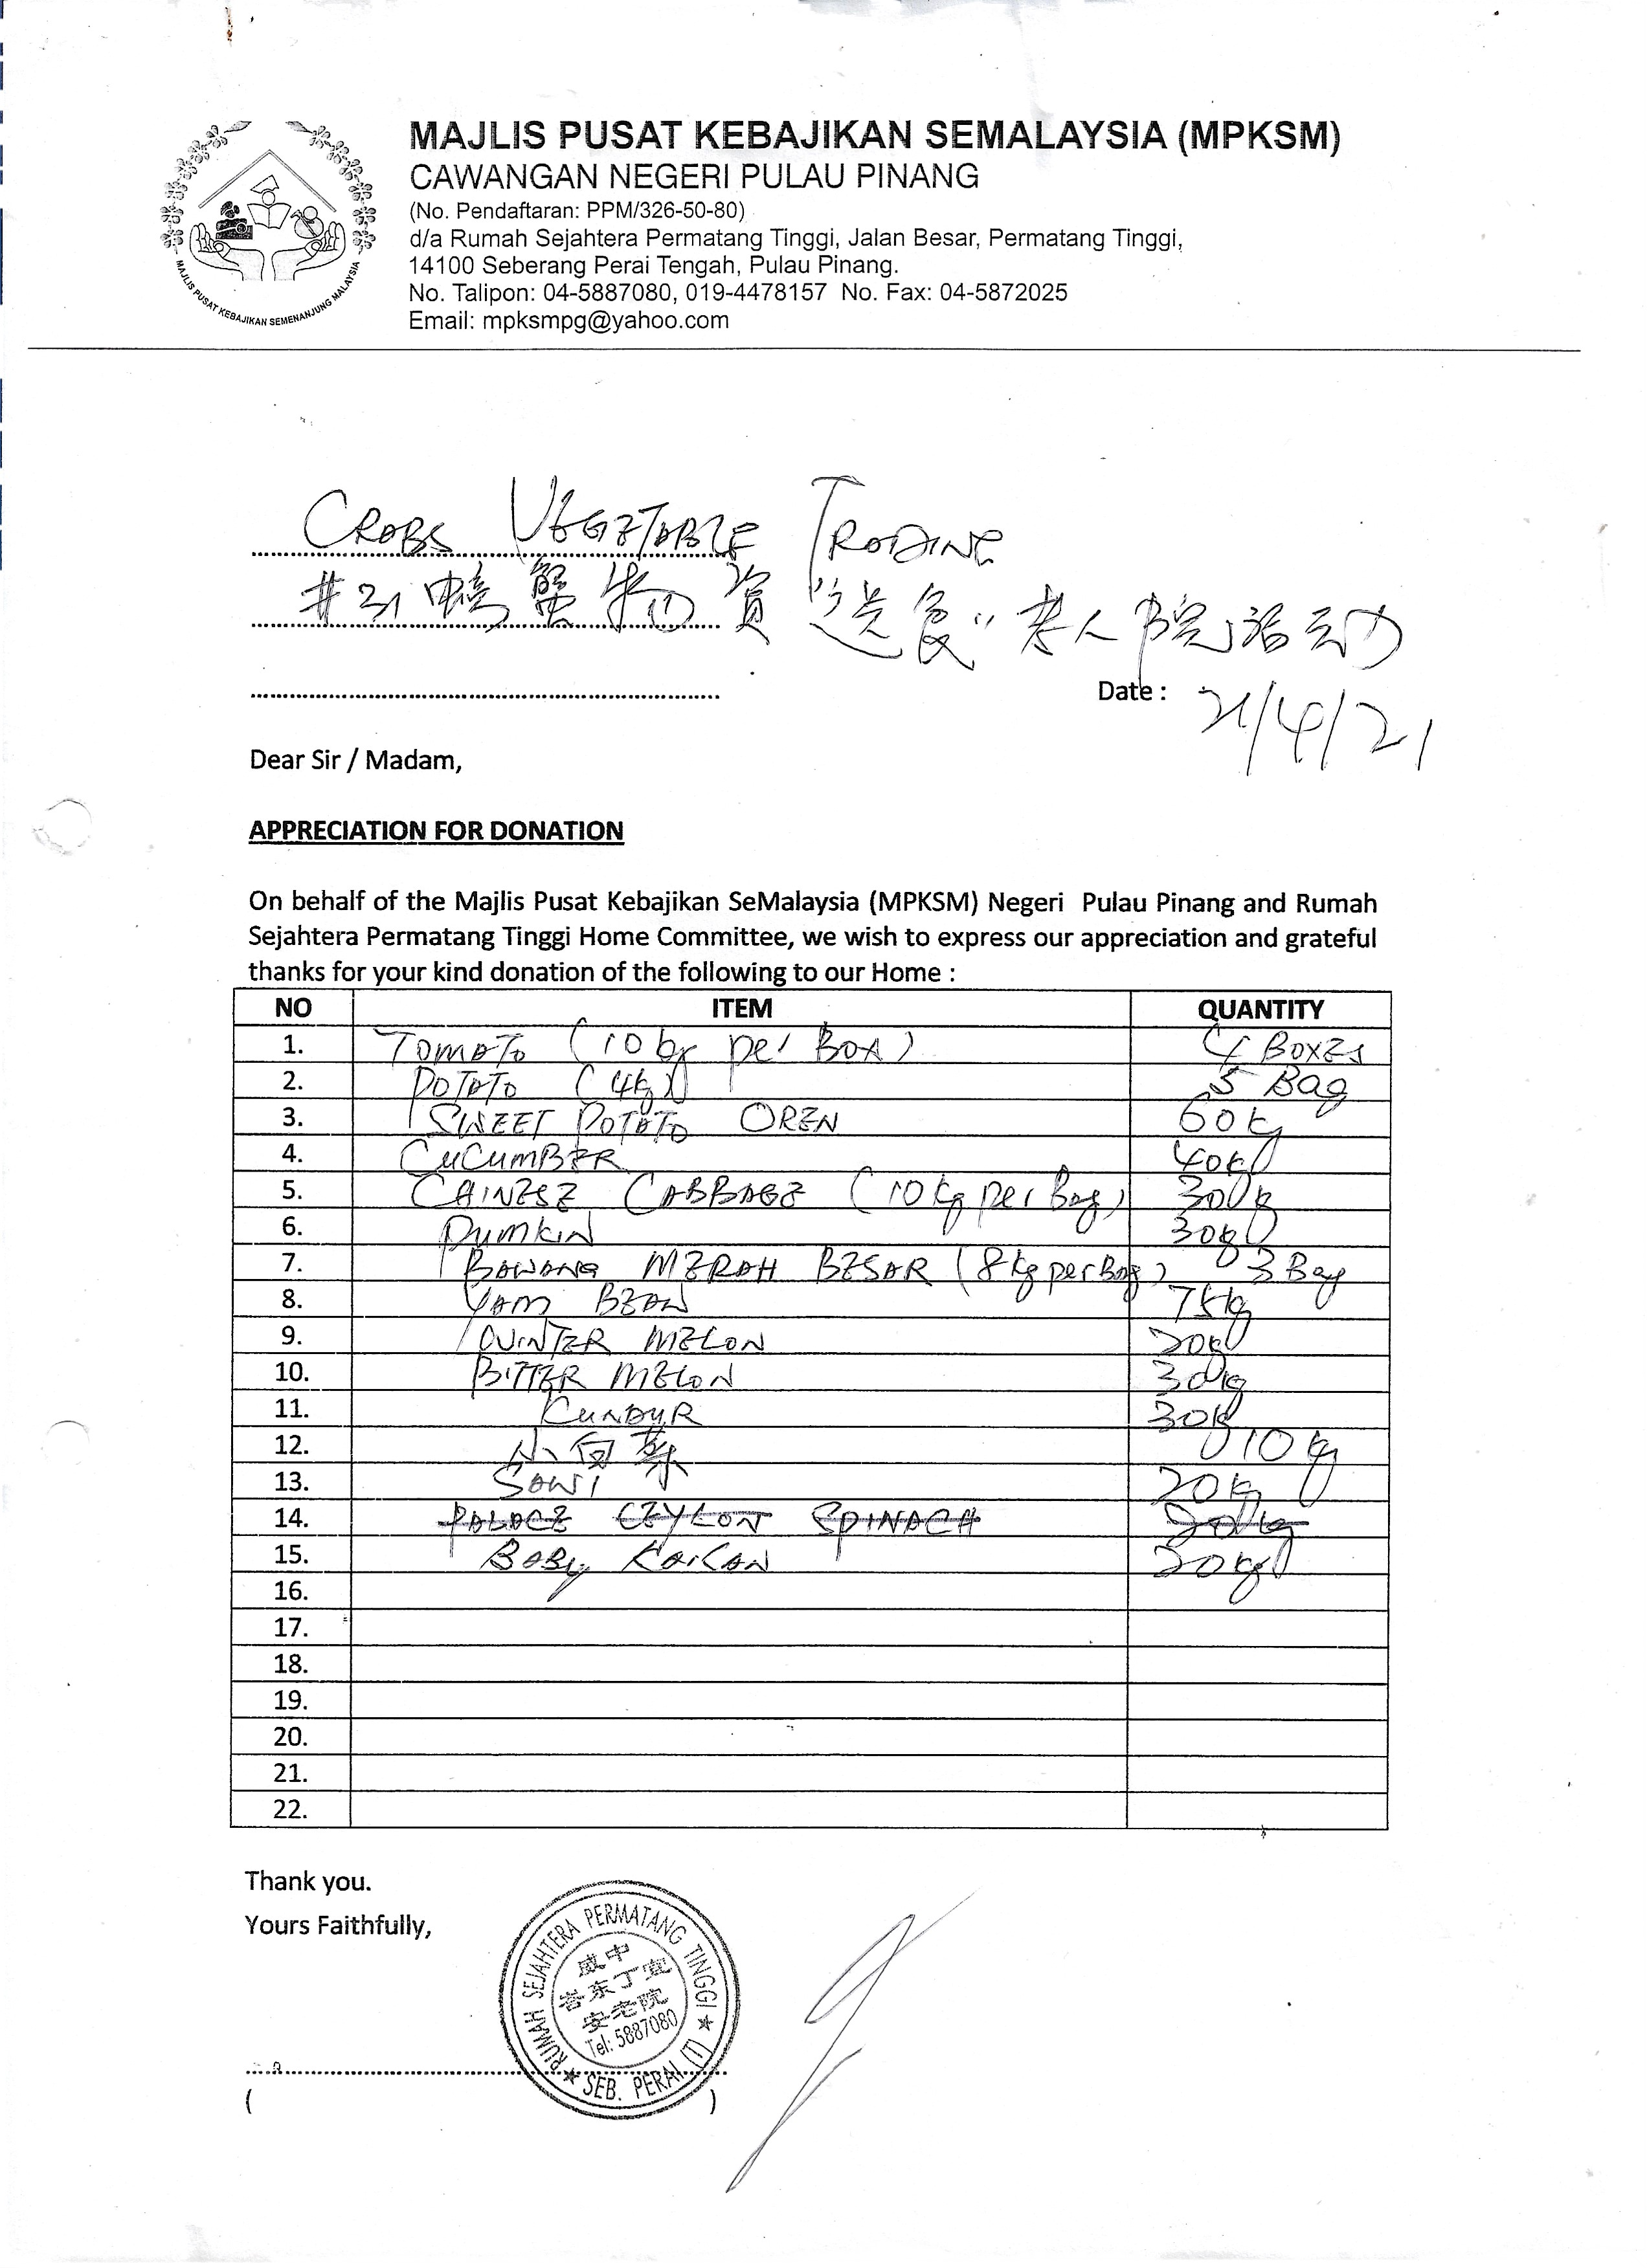 MAJLIS PUSAT KEBAJIKAN SEMALAYSIA (MPKSM)
CAWANGAN NEGERI PULAU PINANG
(No. Pendaftaran: PPM/326-50-80)
d/a Rumah Sejahtera Permatang Tinggi, Jalan Besar, Permatang Tinggi,
14100 Seberang Perai Tengah, Pulau Pinang.
No. Talipon: 04-5887080, 019-4478157 No. Fax: 04-5872025
Email: mpksmpg@yahoo.com
MAJLIS PUSAT KEBAJIKAN SEMENANJUNG MALAYSIA
CRABS VEGETABLE TRADING
蟹 物资 老人院 活动
Date : 21/4/21
Dear Sir / Madam,
APPRECIATION FOR DONATION
On behalf of the Majlis Pusat Kebajikan SeMalaysia (MPKSM) Negeri Pulau Pinang and Rumah
Sejahtera Permatang Tinggi Home Committee, we wish to express our appreciation and grateful
thanks for your kind donation of the following to our Home :
NO ITEM QUANTITY
1. TOMATO (10 kg per BOX) 4 BOXES
2. POTATO (4kg) 5 Bag
3. SWEET POTATO OREN 60kg
4. CUCUMBER 40kg
5. CHINESE CABBAGE (10kg per Bag) 300kg
6. PUMKIN 30kg
7. BAWANG MERAH BESAR (8kg per Bag) 3 Bag
8. YAM BEAN 75kg
9. WINTER MELON 20kg
10. BITTER MELON 30kg
11. KUNDUR 30kg
12. 小白菜 10kg
13. SAWI 20kg
14. PALACE CEYLON SPINACH 20kg
15. BABY KAILAN 20kg
16.
17.
18.
19.
20.
21.
22.
Thank you.
Yours Faithfully,
RUMAH SEJAHTERA PERMATANG TINGGI
威中
峇东丁宜
安老院
Tel: 5887080
SEB. PERAI
( )